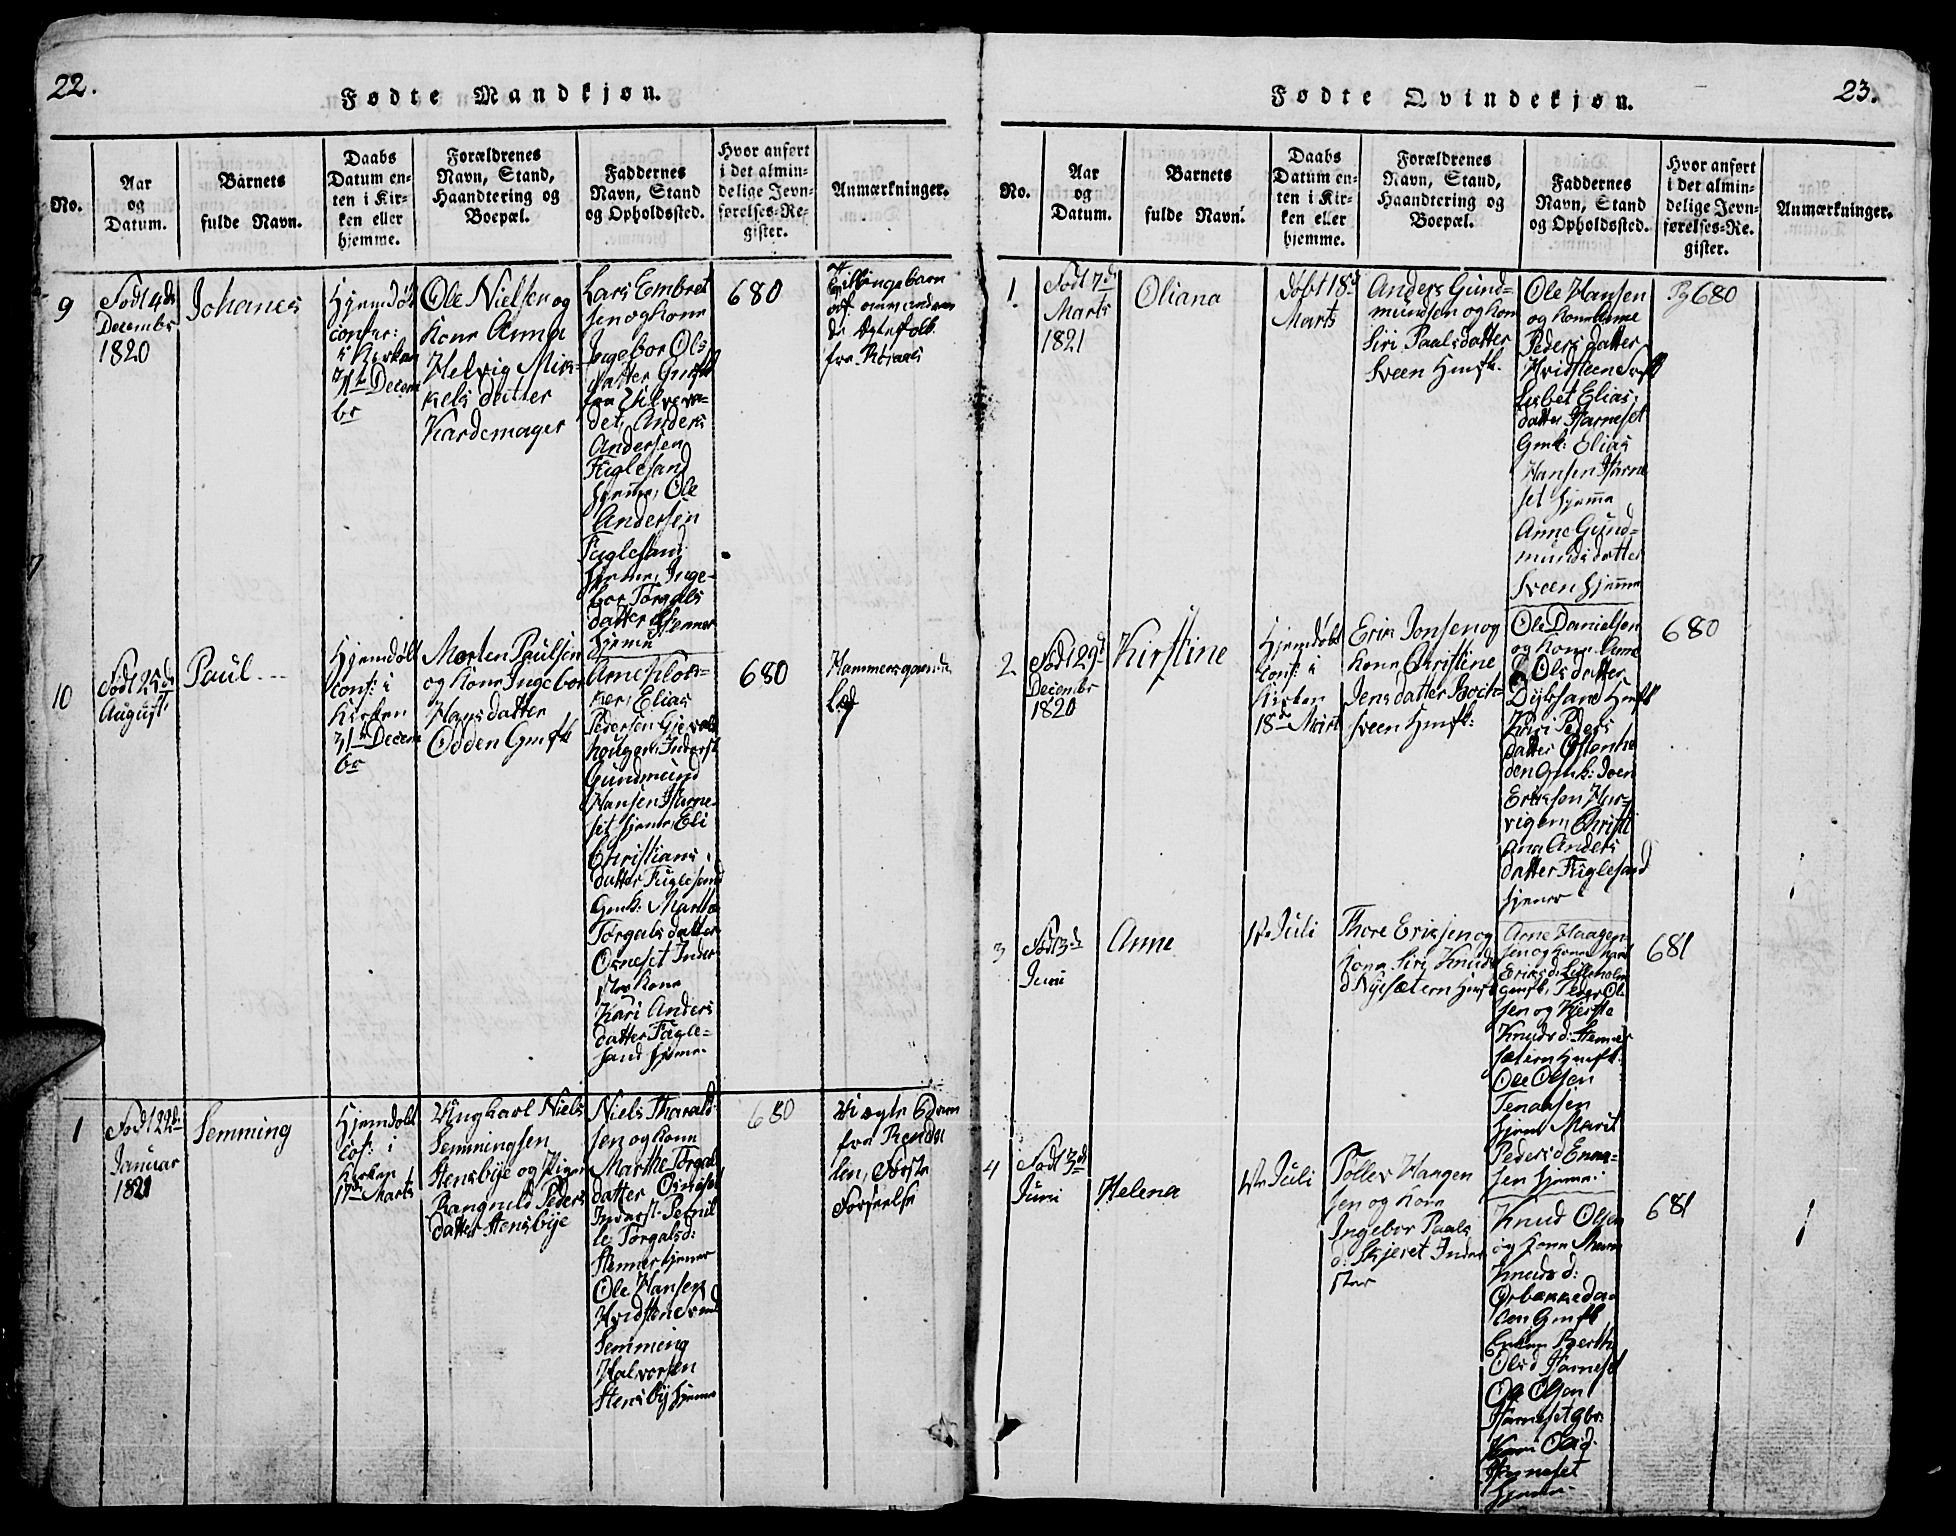 22.
Fødte Mandkjøn.
No.
Aar
og
Datum.
Barnets
fulde Navn.
Daabs
Datum en-
ten i Kir-
ken eller
hjemme.
Forældrenes
Navn, Stand,
Haandtering og
Boepæl.
Faddernes
Navn, Stand
og Opholdssted.
Hvor anført
i det almin-
delige Jevn-
førelses-Re-
gister.
Anmærkninger.
9
Født 4de
Decembr
1820
Johanes
Hjemdøbt
confer:
i Kirken
31te Decem
br
Ole Nielsen og
Kone Anna
Helvig Mik-
kels datter
Kardemager
Lars Embret
sen og Kone
Ingebor Ols
datter Gmsk
fra
det, Anders
Andersen
Fuglesand
hjeme, Ole
Andersen
Fuglesand
hjeme, Inge-
bor Torgals
datter Stemner
hjeme
680
Tvillingebarn
af omvandren
de Ægtefolk
fra Røraas
10
Født 25de
August
Paul
Hjemdøbt
conf: i
Kirken
31te Decem
br
Morten Paulsen
og Kone Ingebor
Hansdatter
Odden Gmsk
Arne
Elias
Pedersen
hougen Inderst
Gundmund
Hansen Harne-
set hjeme, Eli
Christians
datter Fuglesand
Gmk: Marthe
Torgalsdatter
Osneset Inder
stes Kone
Kari Anders
datter Fugle-
sand hjeme.
680
Hammersgaarden
1
Født 29de
Januar
1821
Semming
Hjemdøbt
cof: i
Kirken
17de Marts
Ungkarl Niels
Semmingsen
Stensbye og Pigen
Rangnild Peders
datter Stensbye
Niels Tharald-
sen og Kone
Marthe Torgals
datter Osneset
Inderst. Pernil
le Torgalsd:
Stemner hjemme
Ole Hansen
Hvidsteen
Semming
Halvorsen
Stensby hjeme
680
Uægte
fra Renda
len, Første
Forseelse
23.
Fødte Qvindekjøn.
No.
Aar
og
Datum.
Barnets
fulde Navn.
Daabs
Datum en-
ten i Kir-
ken eller
hjemme.
Forældrenes
Navn, Stand,
Haandtering og
Boepæl.
Faddernes
Navn, Stand
og Opholdssted.
Hvor anført
i det almin-
delige Jevn-
førelses-Re-
gister.
Anmærkninger.
1.
Født 7de
Marts
1821
Oliana
døbt 18de
Marts
Anders Gund-
mundsen og Kone
Siri Paalsdatter
Sveen Hmsk.
Ole Hansen
og Kone Anne
Peders datter
Hvidsteen
Lisbet Elias
datter Harneset
Gmk: Elias
Hansen Harne
set hjeme
Anne Gund-
munds datter
Sveen hjeme
Pg 680
2
Født 29de
Decembr
1820
Kirstine
Hjemdøbt
conf: i
Kirken
18de Marts
Erik Jonsen og
Kone Christine
Jensdatter
Sveen Hmsk:
Ole Danielsen
og Kone Anne
Olsdatter
Dybsand Hmsk
Kari Peders
datter
den Gmk: Joen
Eriksen Har-
vigen, Christi
ana Anders
datter Fuglesand
hjeme
680
3
Født 3de
Juni
Anne
1ste Juli
Thore Eriksen og
Kone Siri Knuds
d Nysætern Hmsk
Arne Haagen-
sen og Kone Kari
Eriksd: Lilleholm
gmsk, Peder Ol
sen og Kierste
Knudsd: Stemner
sætern Hmsk.
Ole Olsen
Tenaasen
hjem Marit
Pedersd Enaa-
sen hjeme.
681
4
Født 3de
Juni
Helena
1ste Juli
Tollev Haagen
sen og Kone
Ingebor Paals
d: Skjeret Inder
ster
Knud Olsen
og Kone
Knudsd:
Ørbækkeda-
len Gmsk
Enken Berthe
Olsd Harneset
Ole Olsen
Harneset gbr.
Kari Olsd.
Harneset
hjeme.
681